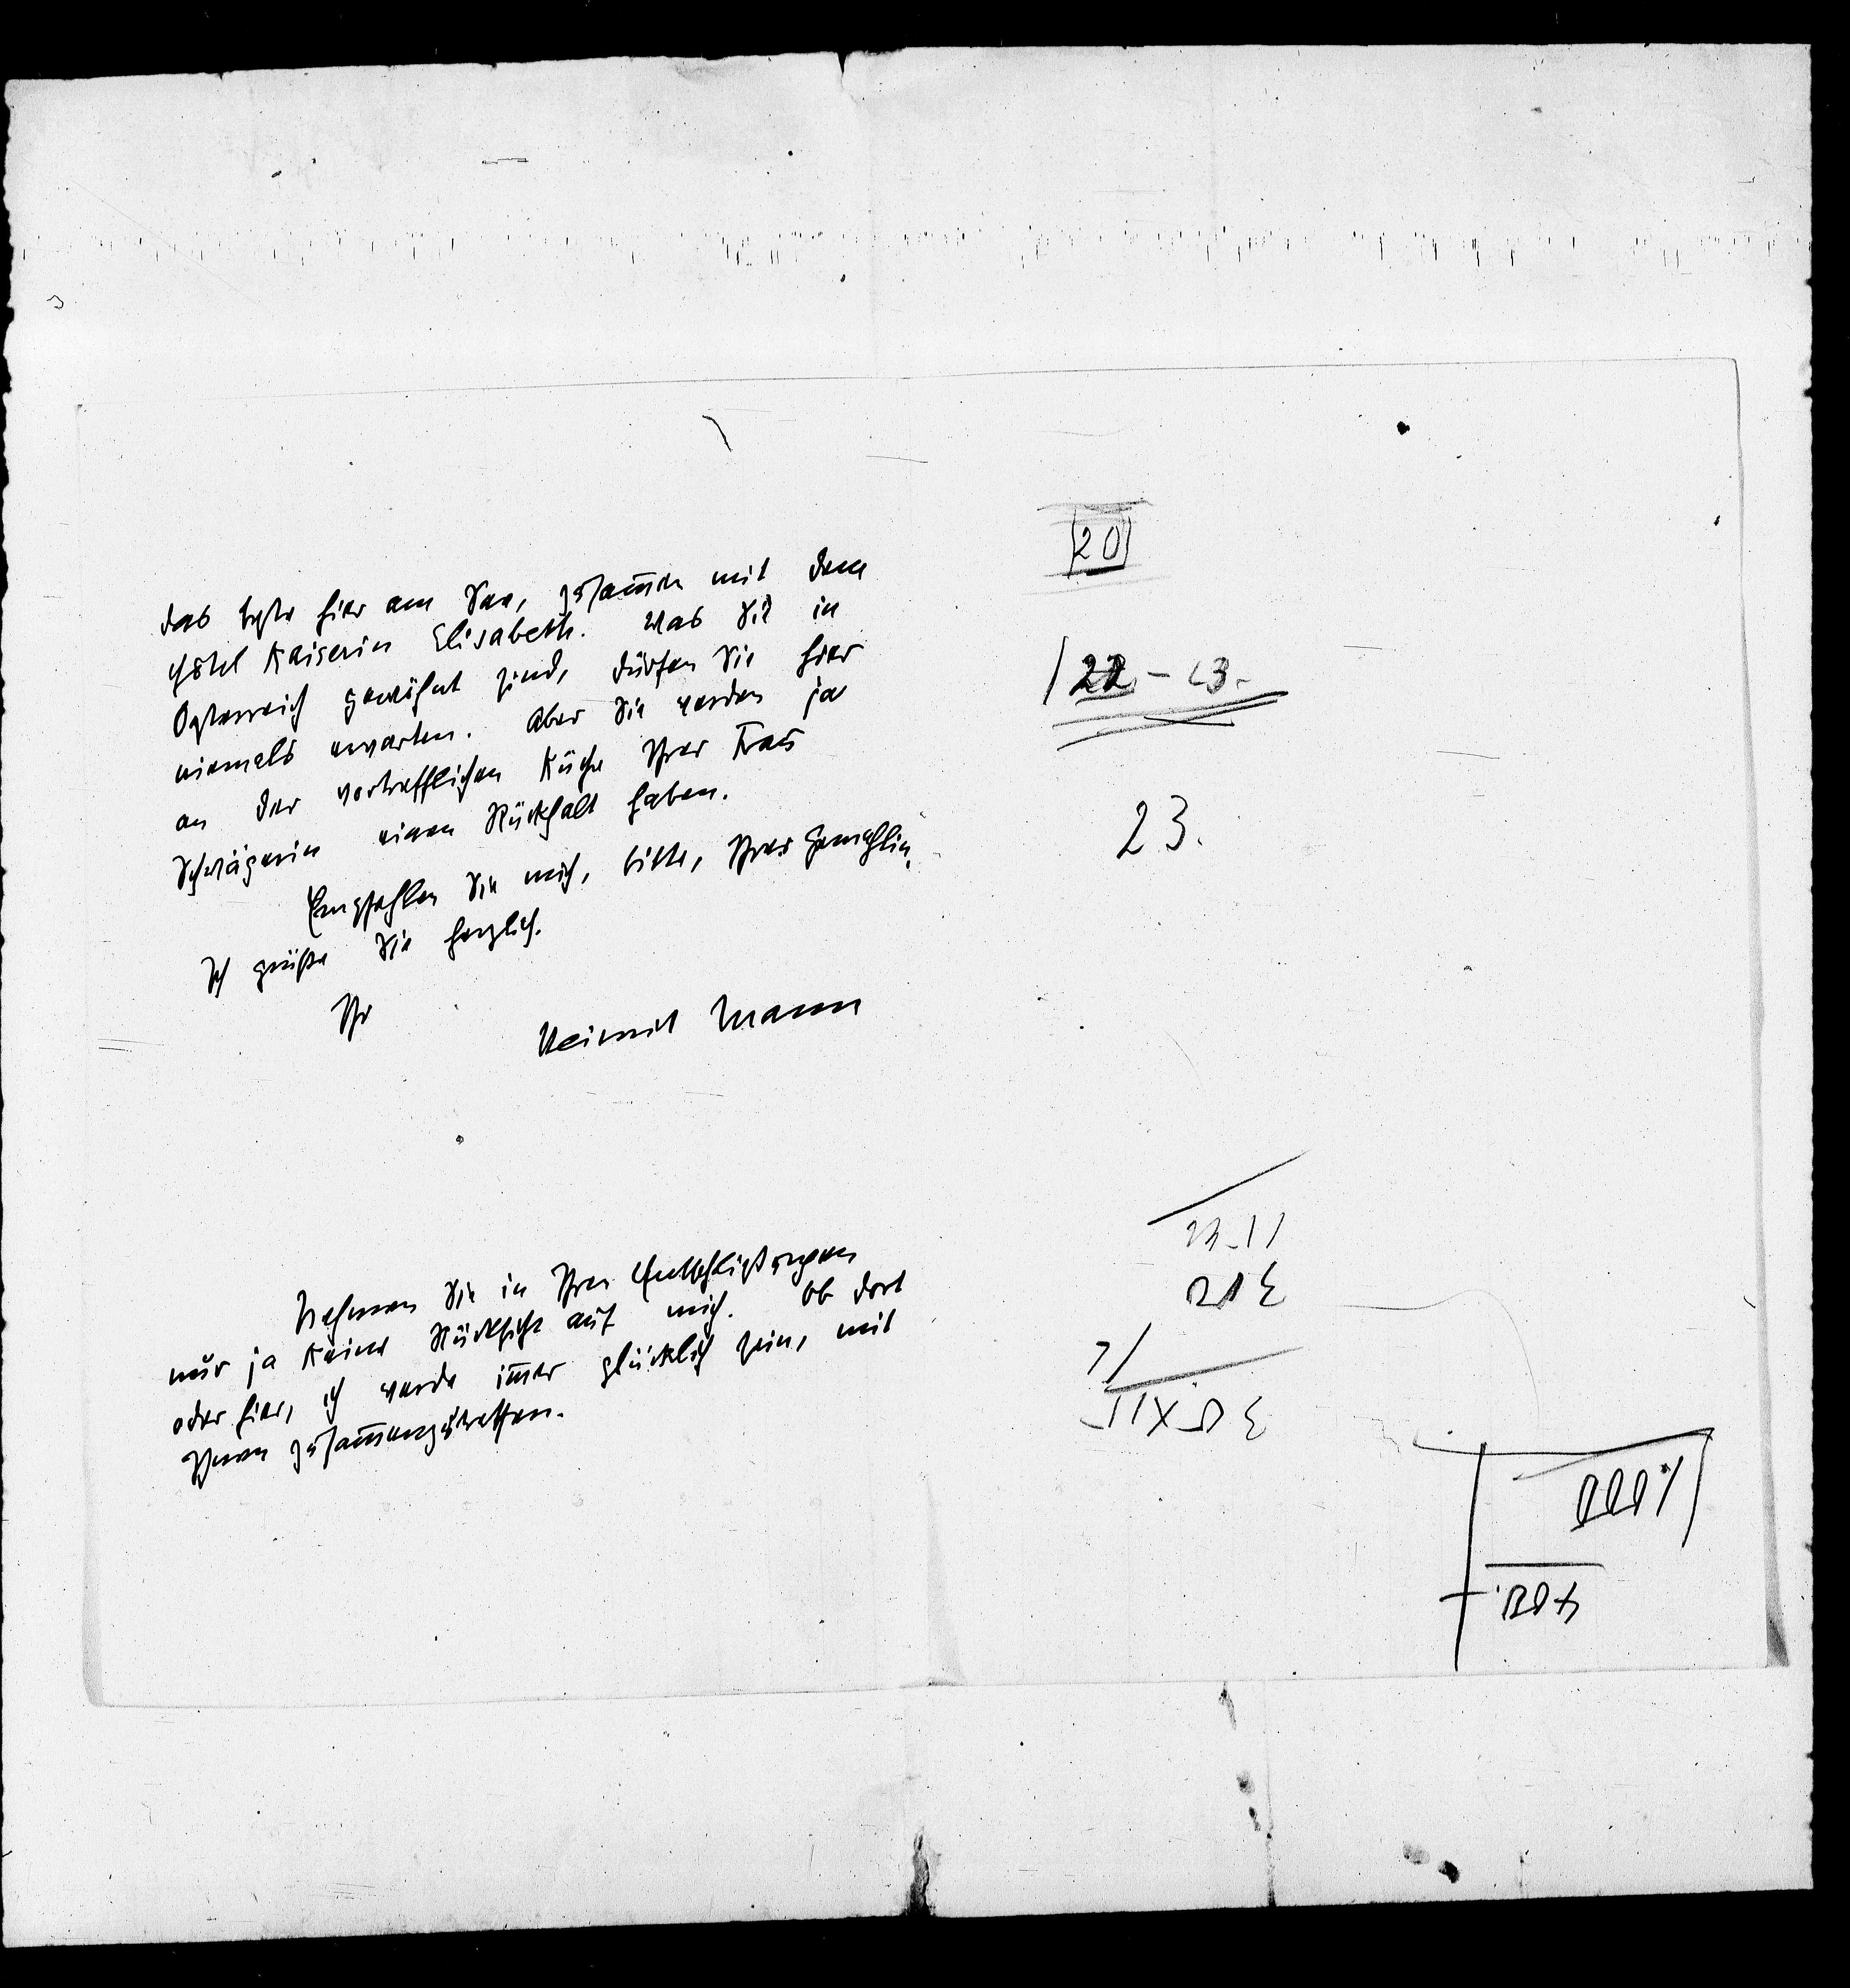 das beste hier am See, zusam̄en mit dem
Hôtel Kaiserin Elisabeth. Was Sie in
Österreich gewöhnt sind, dürfen Sie hier
niemals erwarten. Aber Sie werden ja
an der vortrefflichen Küche Ihrer Frau
Schwägerin einen Rückhalt haben.
Empfehlen Sie mich, bitte, Ihrer Gemahlin.
Ich grüße Sie herzlich.
Ihr
Heinrich Mann
Nehmen Sie in Ihren Entschließungen
nur ja keine Rücksicht auf mich. Ob dort
oder hier, ich werde im̄er glücklich sein, mit
Ihnen zusam̄enzutreffen.
20
22 - 23.
23.